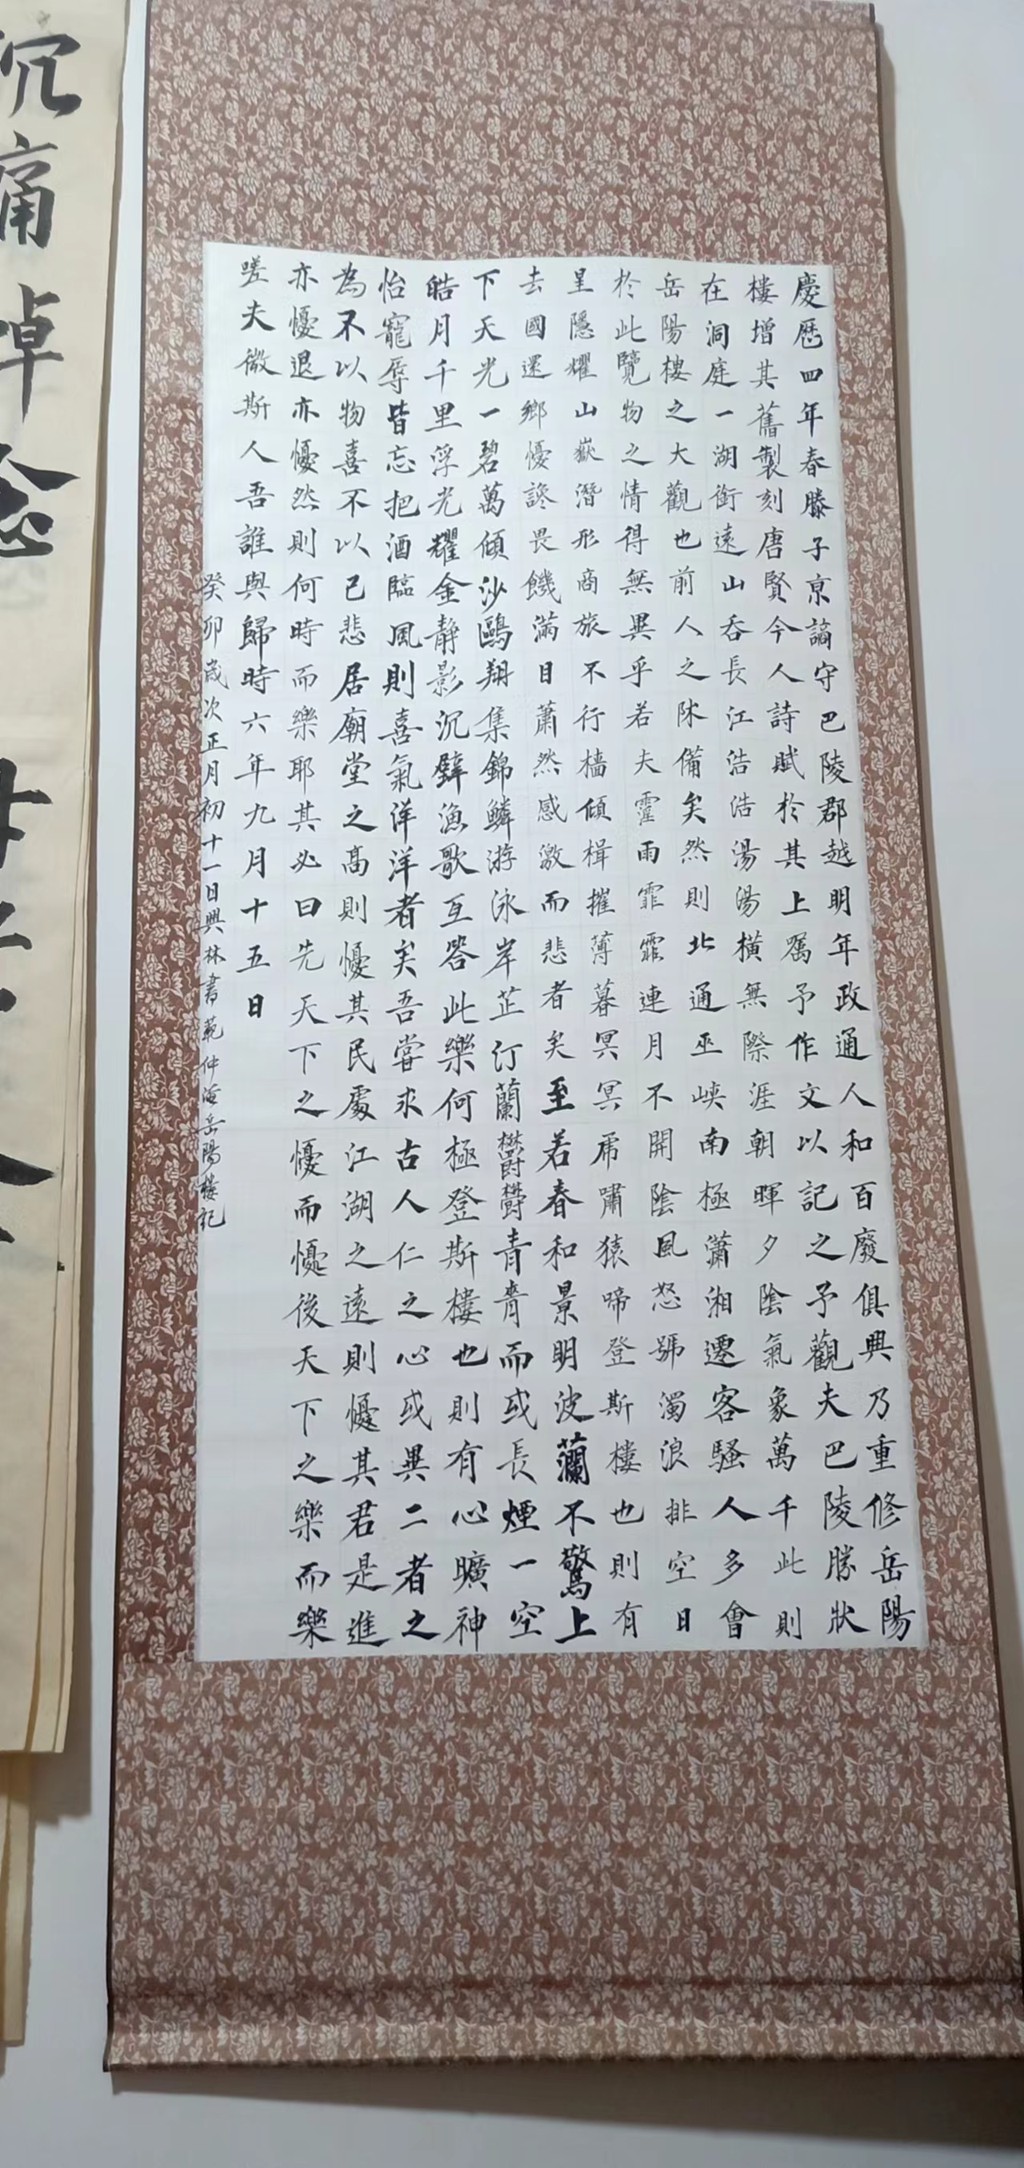 慶曆四年春滕子京謫守巴陵郡越明年政通人和百廢俱興乃重修岳陽
樓增其舊製刻唐賢今人詩賦於其上屬予作文以記之予觀夫巴陵勝狀
在洞庭一湖銜遠山吞長江浩浩湯湯橫無際涯朝暉夕陰氣象萬千此則
岳陽樓之大觀也前人之備矣然則北通巫峽南極瀟湘遷客騷人多會
於此覽物之情得無異乎若夫霪雨霏霏連月不開陰風怒號濁浪排空日
呈隱耀山嶽潛形商旅不行檣傾楫摧薄暮冥冥虎嘯猿啼登斯樓也則有
去國還鄉懮讒畏饑滿目蕭然感激而悲者矣至若春和景明波瀾不驚上
下天光一碧萬傾沙鷗翔集錦鱗游泳岸芷汀蘭鬱鬱青青而或長煙一空
皓月千里浮光耀金静影沉璧漁歌互答此樂何極登斯樓也則有心曠神
怡寵辱皆忘把酒臨風則喜氣洋洋者矣吾嘗求古人仁之心或異二者之
為不以物喜不以己悲居廟堂之高則懮其民處江湖之遠則懮其君是進
亦懮退亦懮然則何時而樂耶其必曰先天下之懮而懮後天下之樂而樂
嗟夫微斯人吾誰與歸時六年九月十五日
癸卯歲次正月初十一日興林書範仲淹岳陽樓記
沉痛悼念